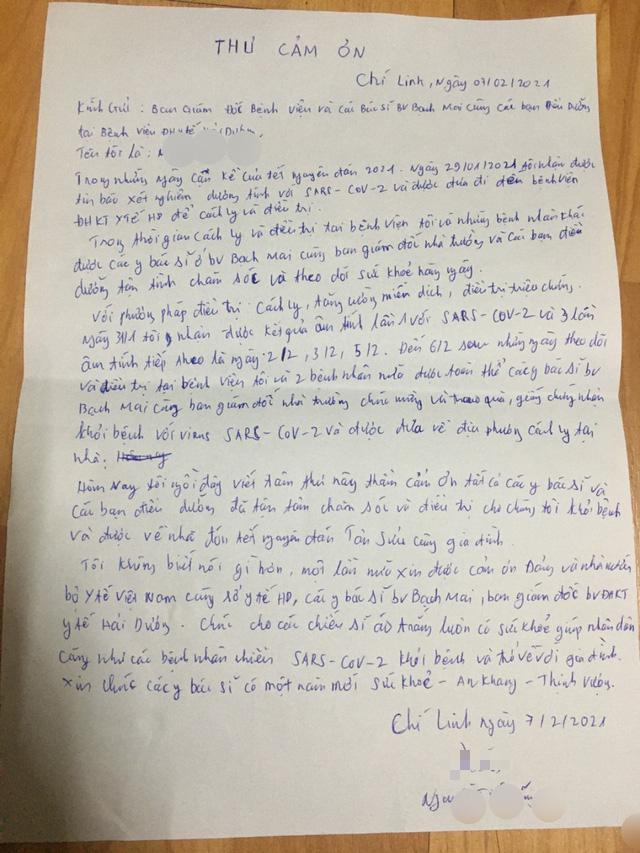 THƯ CẢM ƠN
Chí Linh, Ngày 07/02/2021
Kính Gửi : Ban Giám Đốc Bệnh Viện và các Bác sĩ BV Bạch Mai cùng các bạn Điều Dưỡng
tại Bệnh Viện ĐH Y tế Hải Dương,
Tên tôi là : N
Trong những ngày cận kề của tết nguyên đán 2021. Ngày 29/01/2021 tôi nhận được
tin báo xét nghiệm dương tính với SARS-CoV-2 và được đưa đi đến bệnh viện
ĐHKT Y TẾ HD để cách ly và điều trị.
Trong thời gian cách ly và điều trị tại bệnh viện tôi và những bệnh nhân khác
được các y bác sĩ ở bv Bạch Mai cùng ban giám đốc nhà trường và các bạn điều
dưỡng tận tình chăm sóc và theo dõi sức khoẻ hàng ngày.
Với phương pháp điều trị cách ly, tăng cường miễn dịch, điều trị triệu chứng.
Ngày 31/1 tôi nhận được kết quả âm tính lần 1 với SARS-CoV-2 và 3 lần
âm tính tiếp theo là ngày 2/2, 3/2, 5/2. Đến 6/2 sau những ngày theo dõi
và điều trị tại bệnh viện tôi và 2 bệnh nhân nữa được toàn thể các y bác sĩ bv
Bạch Mai cùng ban giám đốc nhà trường chúc mừng và trao quà, giấy chứng nhận
khỏi bệnh với virus SARS-CoV-2 và được đưa về địa phương cách ly tại
nhà.
Hôm Nay tôi ngồi đây viết tâm thư này thầm cảm ơn tất cả các y bác sĩ và
các bạn điều dưỡng đã tận tâm chăm sóc và điều trị cho chúng tôi khỏi bệnh
và được về nhà đón tết nguyên đán Tân Sửu cùng gia đình.
Tôi không biết nói gì hơn, một lần nữa xin được cảm ơn Đảng và nhà nước,
bộ Y tế Việt Nam cùng sở y tế HD, các y bác sĩ bv Bạch Mai, ban giám đốc bv ĐHKT
y tế Hải Dương. Chúc cho các chiến sĩ áo trắng luôn có sức khoẻ giúp nhân dân
cũng như các bệnh nhân chiến SARS-CoV-2 khỏi bệnh và trở về với gia đình.
Xin chúc các y bác sĩ có một năm mới Sức khoẻ - An Khang - Thịnh Vượng.
Chí Linh ngày 7/2/2021